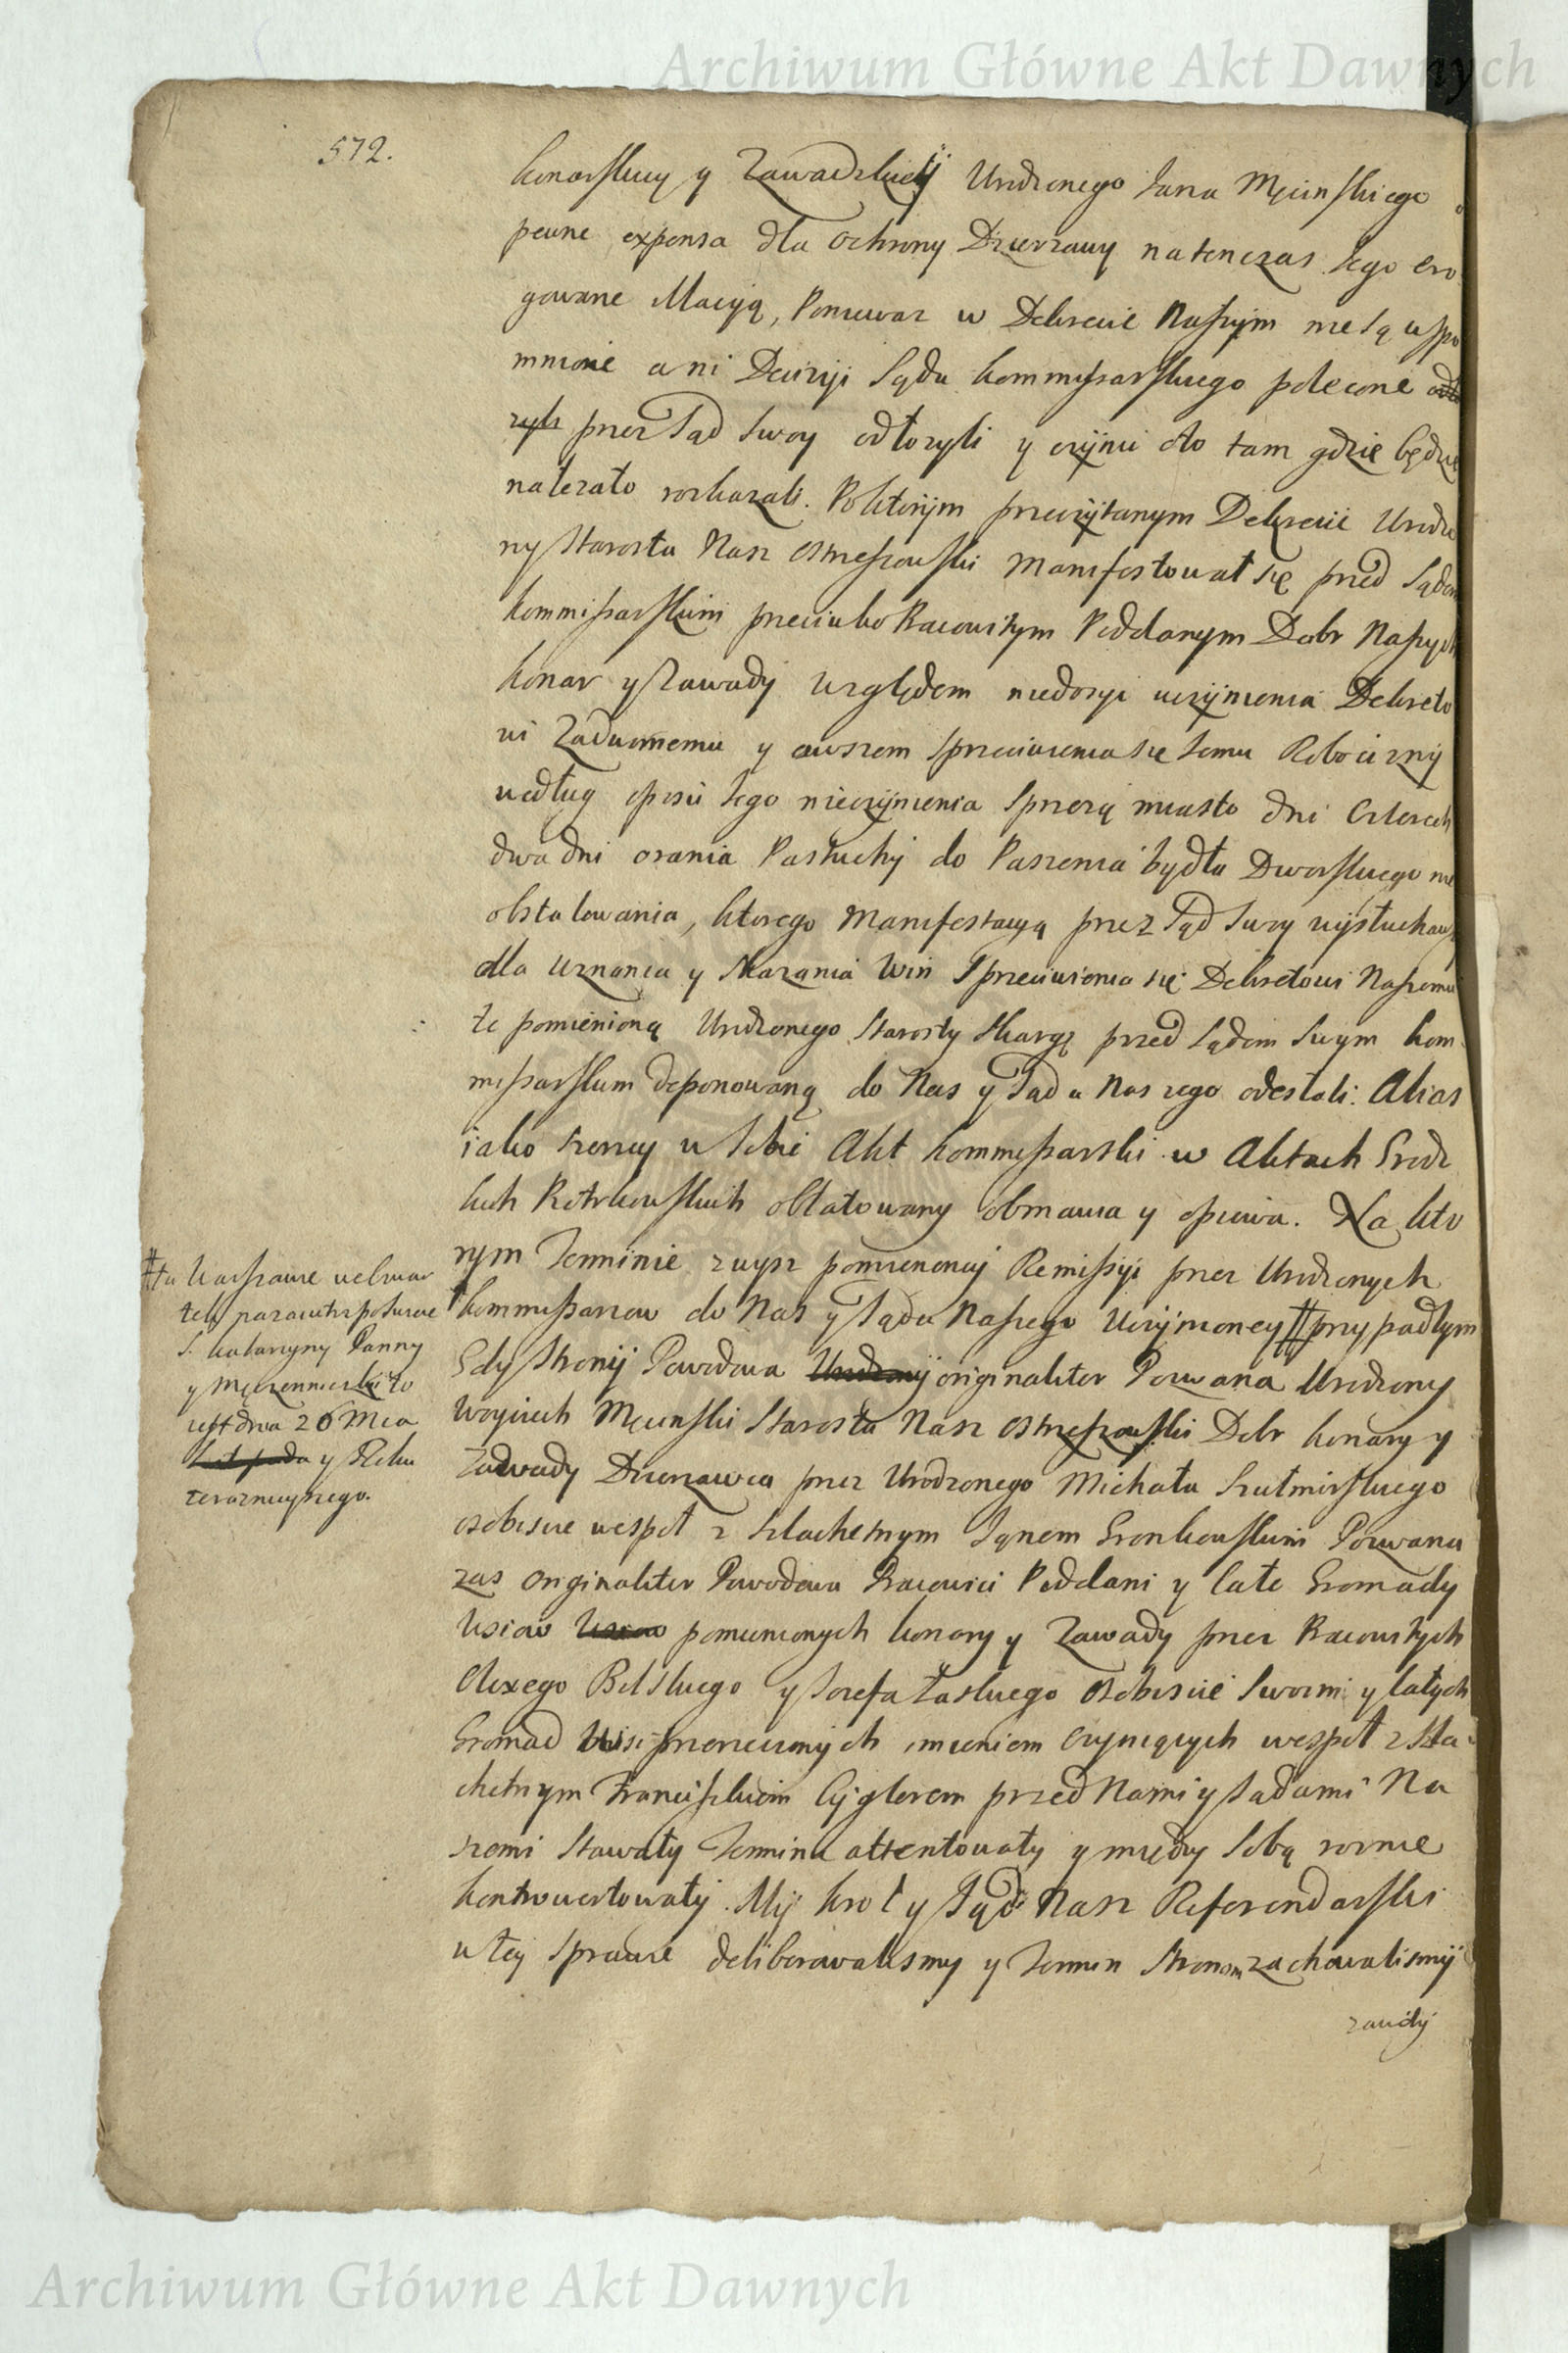 Archiwum Główne Akt Dawnych
572.
Konarskiey y Zawadzkiey Urodzonego Jana Męcinskiego o
pewne expensa dla ochrony Dzierzawy natenczas Jego ero
gowane Maiyą, Poniewaz w Dekrecie Naszym nie są wspo
mnione ani Decizyi Sądu Kommissarskiego polecone
przez Sąd Swoy odłozyli y czynic oto tam gdzie będzie
nalezało roskazali. Poktorym przeczytanym Dekrecie Urodzo
ny Starosta Nasz Ostrzeszowski Manifestował się przed Sądem
Kommissarskim przeciwko Pracowitym Poddanym Dobr Naszych
Konar y Zawady względem niedosyc uczynienia Dekreto
wi Zadwornemu y owszem Sprzeciwienia się temu Robocizny
według opisu Jego nieczynienia Sprzęzą miasto dni Czterech
dwa dni orania Pastuchy do Paszenia bydła Dworskiego nie
obstalowania, ktorego Manifestacyą przez Sąd Swoy wysłuchawszy
dla Uznania y Skazania Win Sprzeciwienia się Dekretowi Naszemu
te pomienioną Urodzonego Starosty Skargę przed Sądem Swym Kom
missarskim deponowaną do Nas y Sądu Naszego odesłali. Alias
iako szerzey w Sobie Akt Kommissarski w Aktach Grodz
kich Piotrkowskich oblatowany obmawia y opiewa. Na kto
rym Terminie zwysz pomienioney Remissyi przez Urodzonych
Kommissarzow do Nas y Sądu Naszego Uczynioney # przypadłym
# tu w Warszawie we Czwar
tek nazaiutrz po Swięcie
S. Katarzyny Panny
y Męczenniczki to
iest dnia 26 Mca
Listopada y Roku
teraznieyszego.
Gdy Strony Powodowa originaliter Pozwana Urodzony
Woyciech Męcinski Starosta Nasz Ostrzeszowski Dobr Konary y
Zawady Dzierzawca przez Urodzonego Michała Szatmirskiego
osobiscie wespoł z Szlachetnym Janem Gronkowskim Pozwana
zas originaliter Powodowa Pracowici Poddani y całe Gromady
Wsiow pomienionych Konary y Zawady przez Pracowitych
Alexego Belskiego y Jozefa Łaskiego osobiscie Swoim y całych
Gromad Wsi przerzeczonych imieniem czyniących wespoł z Szla
chetnym Franciszkiem Cyglerem przed Nami y Sądami Na
szemi Stawały Termina attentowały y między Sobą rownie
kontrowertowały. My Krol y Sąd Nasz Referendarski
w tey Sprawie deliberowalismy y Termin Stronom zachowalismy
zawdy
Archiwum Główne Akt Dawnych